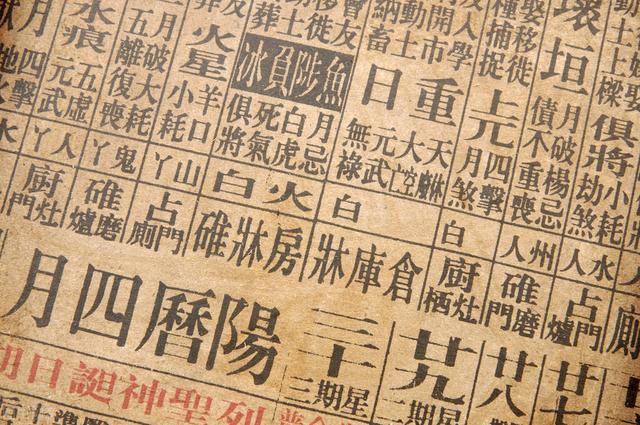 壞垣
小耗
劫煞
俱將
水人
占門
爐
廿七
娶移徙
種捕捉
月破楊忌
債不重喪
州人
碓磨
門
廿八
上元
四擊
月煞
白
廚灶
栖
廿九
星期二
開市
動土
納畜
重日
大空
元武
無祿
白
倉庫牀
三十
星期三
魚陟負冰
月忌
白虎
死氣
俱將
火白
房牀碓
火星
羊口
小耗
山丫
占門
厠
月破大耗
五離復喪
鬼丫
碓磨
爐
水痕
五虛
元武
人丫
廚灶
門
月
四擊
陽曆四月
列聖神誕日